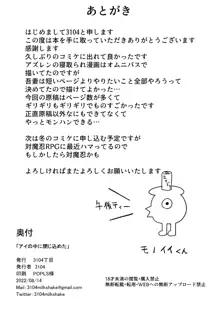 あとがき
はじめまして3104と申します
この度は本を手に取っていただきありがとうございます
感謝します
久しぶりのコミケに出れて良かったです
アズレンの寝取られ漫画はオムニバスで
描いてたのですが
吾妻は短いページよりやりたいこと全部やろうって
決めてたので描けてよかった…
今回の原稿はページ数が多くて
ギリギリもギリギリでものすごかったです
正直原稿以外なにもできなくて
やっとモンハンできる…
次は冬のコミケに申し込む予定ですが
対魔忍RPGに最近ハマってるので
もしかしたら対魔忍かも
よろしければまたよろしくお願いいたします
午後ティー
モノイイくん
奥付
「アイの中に閉じ込めた」
発行 3104丁目
発行者 3104
印刷 POPLS様
2022/08/14
Mail: 3104milkshake@gmail.com
Twitter: 3104milkshake
18才未満の閲覧・購入禁止
無断転載・転用・WEBへの無断アップロード禁止